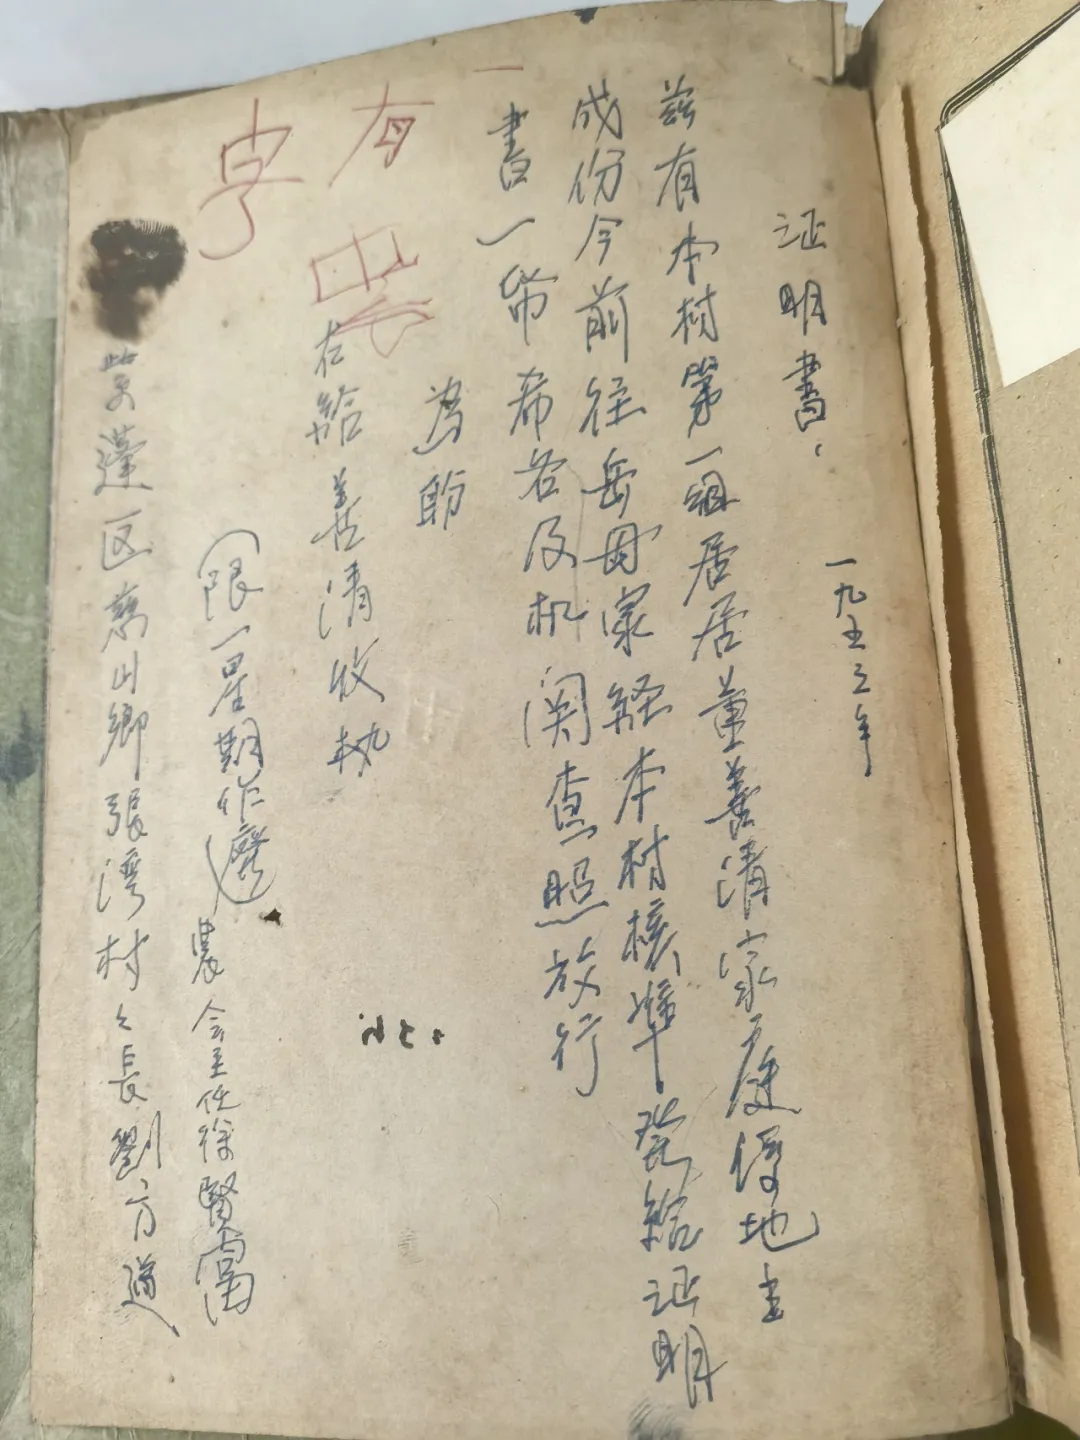 一九五三年
证明書、
茲有本村第一組居居董善清家庭僾地主
成份今前往岳母家経本村核準發給证明
書一帋希各及机関查照放行
為盼
右給善清收执
(限一星期作廢)
農会主任徐賢富
蓬一区萬山鄉張湾村々長劉方道
一
有
字